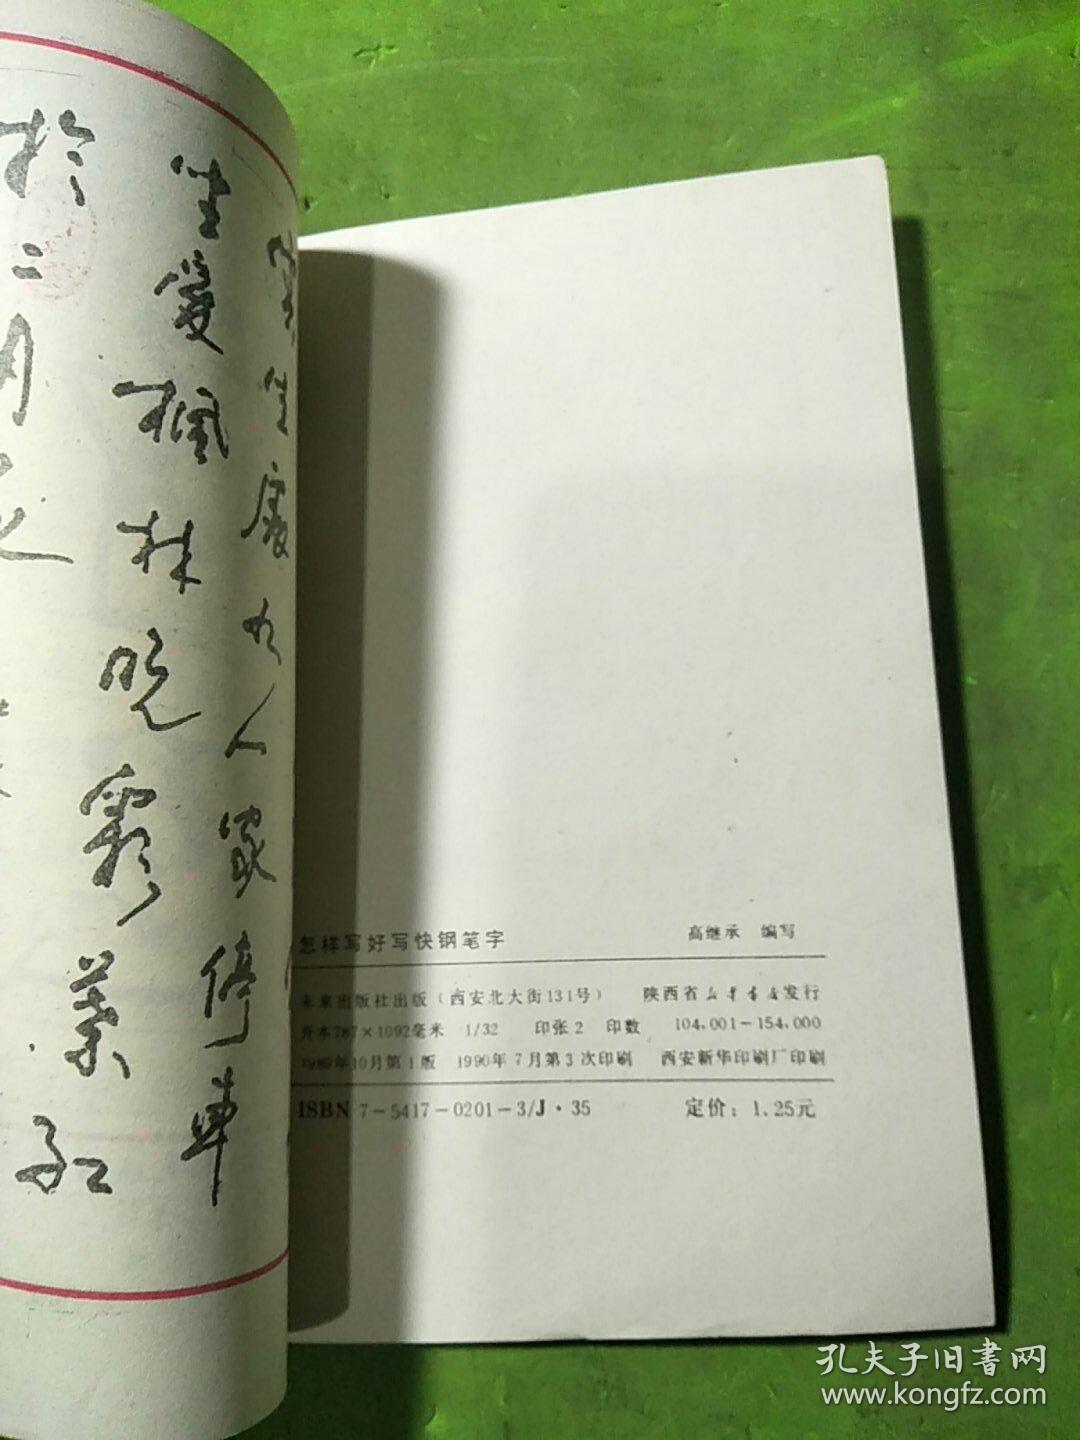 雲生處有人家停車
坐愛楓林晚霜葉紅
於二月花
怎样写好写快钢笔字 高继承 编写
未来出版社出版（西安北大街131号） 陕西省新华书店发行
开本787×1092毫米 1/32 印张2 印数 104,001-154,000
1989年10月第1版 1990年7月第3次印刷 西安新华印刷厂印刷
ISBN 7-5417-0201-3/J·35 定价：1.25元
孔夫子旧書网
www.kongfz.com